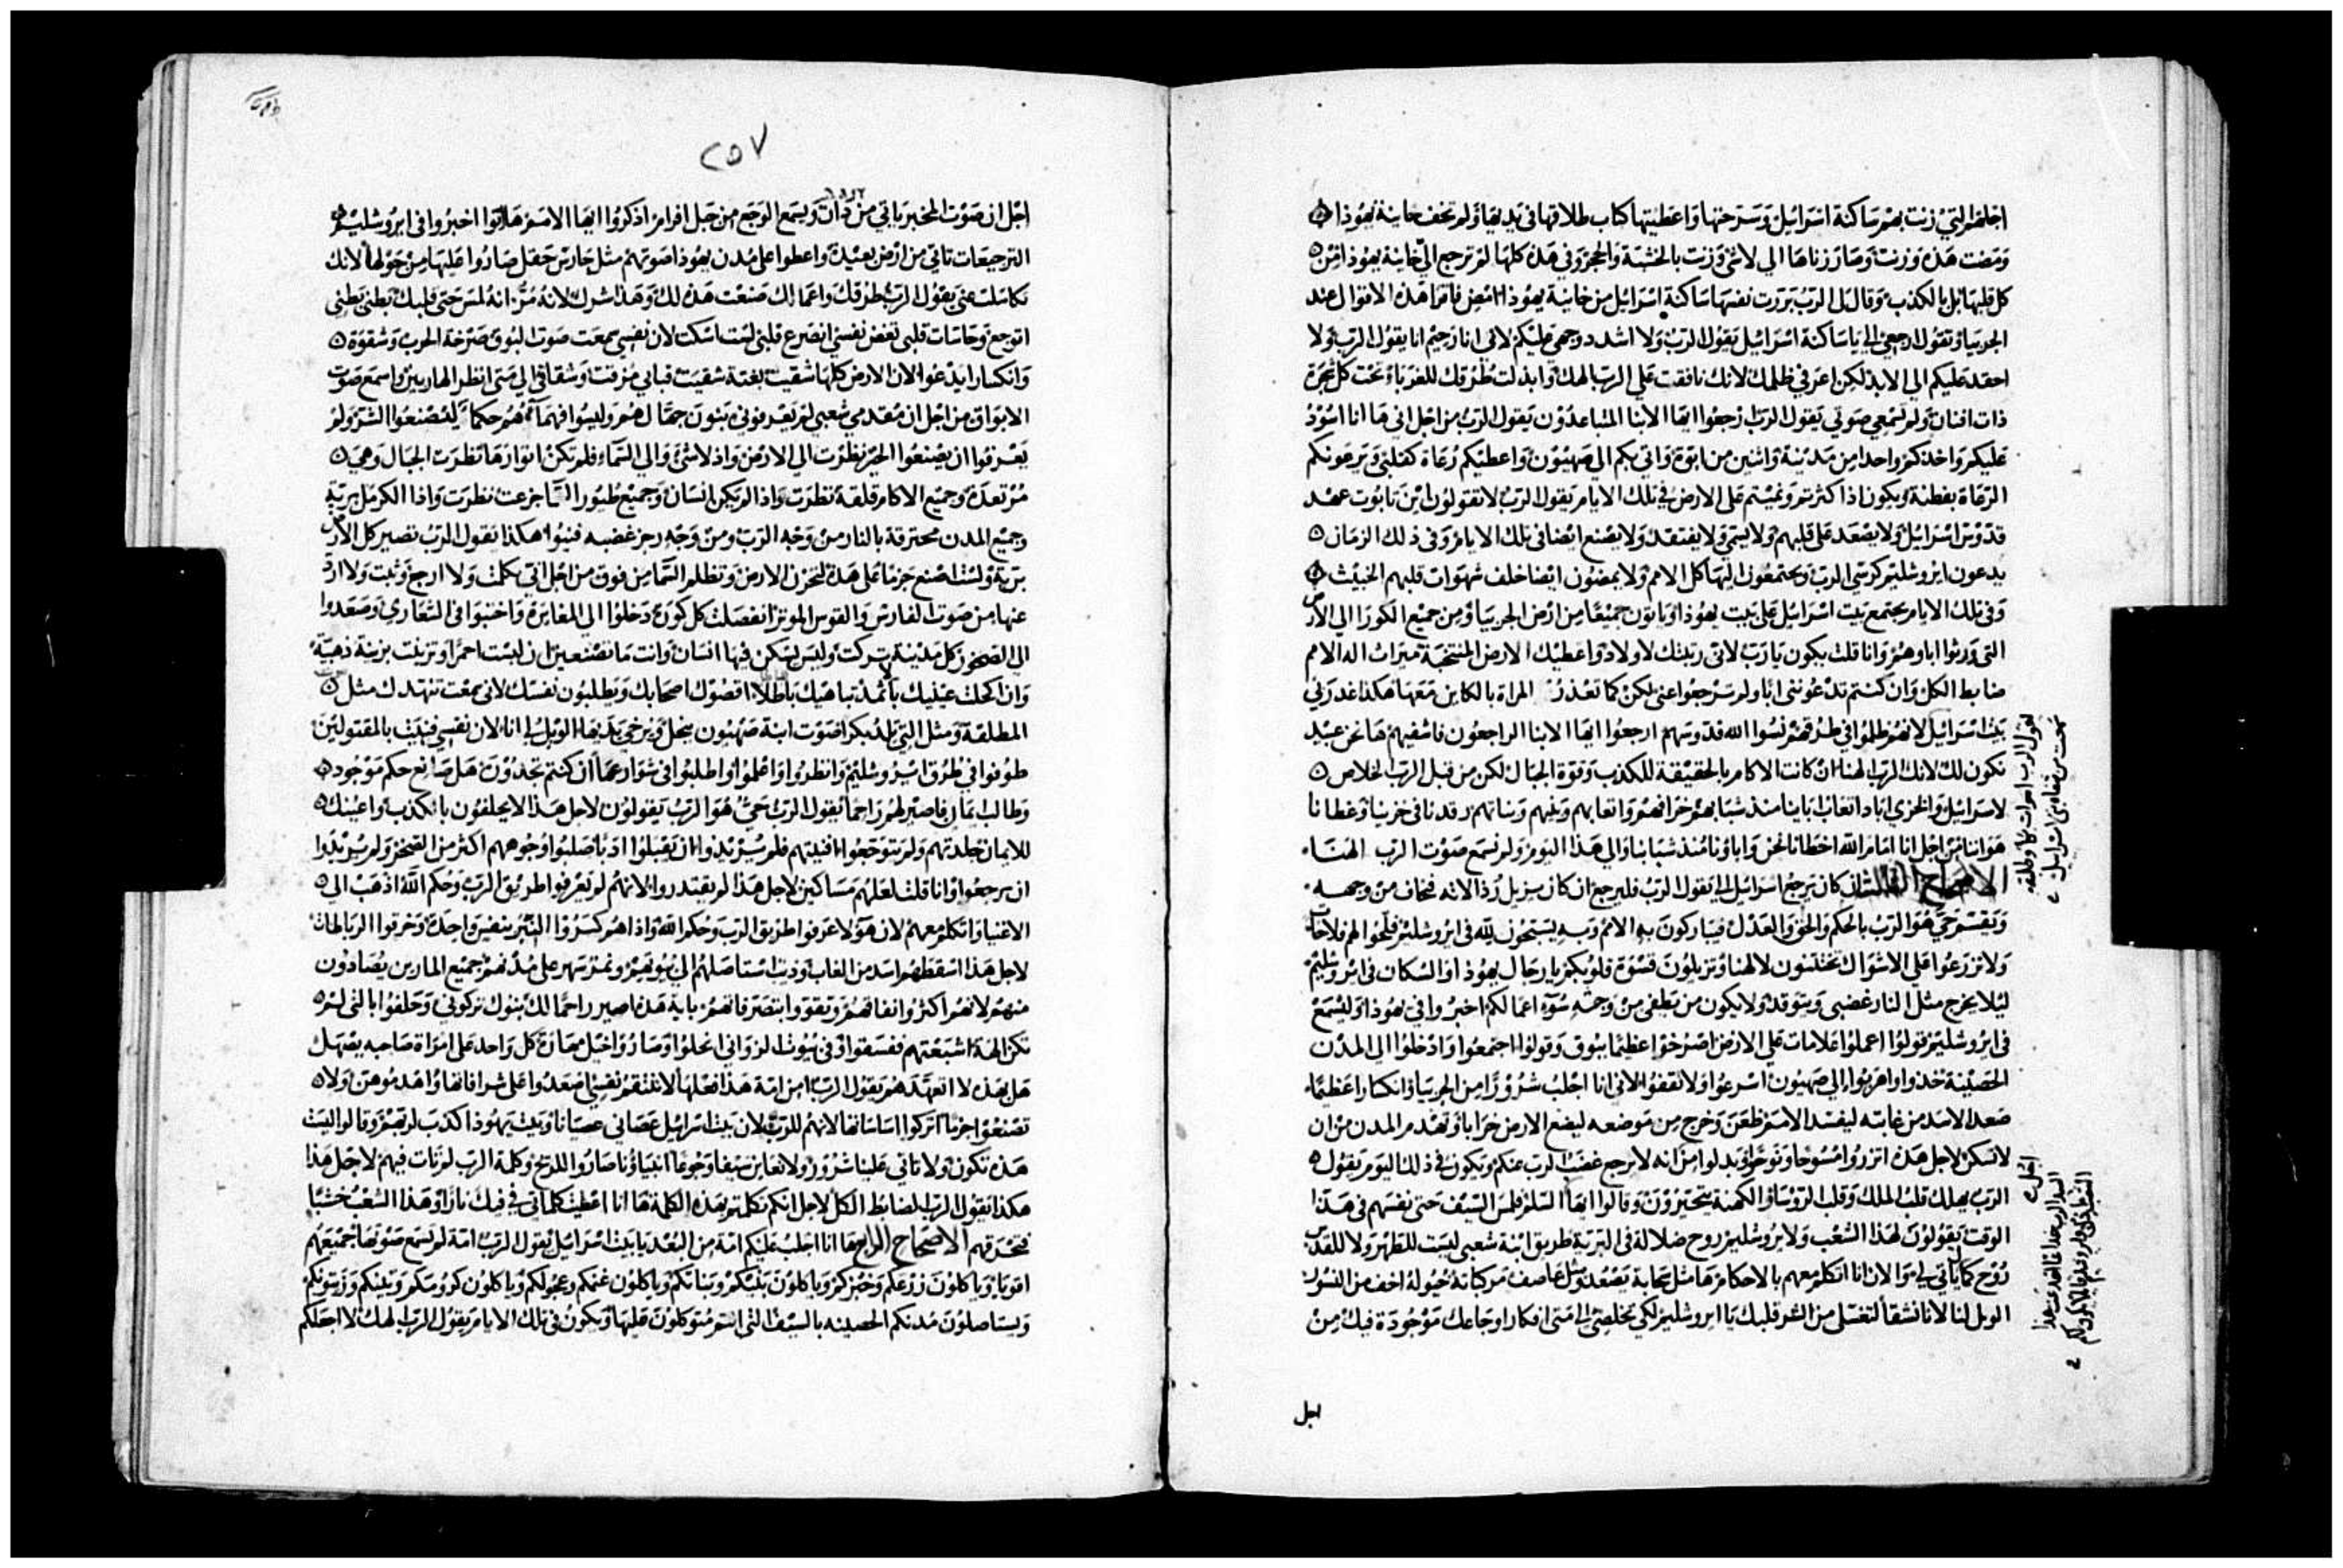 اخلهم التي زنت بهم ساكنة اسرائيل وسرحتها واعطيتها كتاب طلاقها في يديها ولم تخف خاينة يهوذا
ومضت هذه وزنت وصار زناها الي لاشئ وزنت بالخشبة والحجر وفي هذه كلها لم ترجع الي خاينة يهوذا من
كل قلبها بل بالكذب وقال لي الرب بررت نفسها ساكنة اسرائيل من خاينة يهوذا امض فاقرا هذه الاقوال عند
الجربيا وتقول ارجعي الي يا ساكنة اسرائيل يقول الرب ولا اشدد وجهي عليكم لاني انا رحيم انا يقول الرب ولا
احقد عليكم الي الابد لكن اعرفي ظلمك لانك نافقت علي الرب الهك وابدلت طرقك للغرباء تحت كل شجرة
ذات افنان ولم تسمعي صوتي يقول الرب ارجعوا ايها الابنا المتباعدون يقول الرب من اجل اني ها انا اسود
عليكم واخذكم واحدا من مدينة واثنين من ابوة واتي بكم الي صهيون واعطيكم رعاة كقلبي ويرعونكم
الرعاة بفطنة ويكون اذا كثرتم ونميتم علي الارض في تلك الايام يقول الرب لا تقولون اين تابوت عهد
قدوس اسرائيل ولا يصعد علي قلبهم ولا يسمي ولا يفتقد ولا يصنع ايضا في تلك الايام وفي ذلك الزمان
يدعون ايروشليم كرسي الرب ويجتمعون اليها كل الامم ولا يمضون ايضا خلف شهوات قلبهم الخبيث
وفي تلك الايام يجتمع بيت اسرائيل علي بيت يهوذا وياتون جميعا من ارض الجربيا ومن جميع الكور الي الارض
التي ورثوا اباوهم وانا قلت يكون يا رب لاني ربتك لاولاد واعطيك الارض المنتخبة ميراث اله الامم
ضابط الكل وان كنتم تدعونني ابا ولم ترجعوا عني لكن كما تغدر المراة بالكاين معها هكذا غدر بي
بيت اسرائيل لانهم ظلموا في طرقهم نسوا الله قدوسهم ارجعوا ايها الابنا الراجعون فاشفيهم ها نحن عبيد
نكون لك لانك الرب الهنا ان كانت الاكام بالحقيقة للكذب وقوة الجبال لكن من قبل الرب الخلاص
لاسرائيل والخزي اباد اتعاب ابائنا منذ شبابهم خرافهم واتعابهم وبنيهم وبناتهم رقدنا في خزينا وغطانا
هواننا من اجل انا امام الله اخطانا نحن واباؤنا منذ شبابنا والي هذا اليوم ولم نسمع صوت الرب الهنا
الاصحاح الثالث ان كان يرجع اسرائيل الي يقول الرب فليرجع ان كان يزيل رذالاته فخاف من وجهه
ويقسم حي هو الرب بالحكم والحق والعدل فيباركون به الامم وبه يسبحون لله في ايروشليم
ولا تزرعوا علي الاشواك تختتنون لالهنا وتزيلون قسوة قلوبكم يا رجال يهوذا والسكان في ايروشليم
ليلا يخرج مثل النار غضبي ويتوقد ولا يكون من يطفي من وجه سوء اعمالكم اخبروا في يهوذا وليسمع
في ايروشليم قولوا اعملوا علامات علي الارض اصرخوا عظيما ببوق وقولوا اجتمعوا وادخلوا الي المدن
الحصينة خذوا واهربوا الي صهيون اسرعوا ولا تقفوا لاني انا اجلب شرورا من الجربيا وانكسارا عظيما
صعد الاسد من غابته ليفسد الامم ظعن وخرج من موضعه ليضع الارض خرابا وتهدم المدن من ان
لا تسكن لاجل هذه اتزروا مسوحا ونوحوا وبدلوا من انه لا يرجع غضب الرب عنكم ويكون في ذلك اليوم يقول
الرب يهلك قلب الملك وقلب الروسا والكهنة يتحيرون وقالوا ايها السلم فلمس السيف حتي نفسهم في هذا
الوقت يقولون لهذا الشعب ولايروشليم روح ضلالة في البرية طريق ابنة شعبي ليست للطهر ولا للقدس
روح كما ياتي لي والان انا اتكلم معهم بالاحكام ها مثل سحابة يصعد ومثل عاصف مركباته خيوله اخف من النسور
الويل لنا لانا نشقا لتغسل من الشر قلبك يا ايروشليم لكي تخلصي الي متي افكار اوجاعك موجودة فيك من
اجل
٢٥٧
اجل ان صوت المخبر ياتي من دان ويسمع الوجع من جبل افرام اذكروا ايها الامم ها اتوا اخبروا في ايروشليم
الترجيعات تاتي من ارض بعيدة واعطوا علي مدن يهوذا صوتهم مثل حارس حقل صاروا عليها من حولها لانك
تكاسلت عني يقول الرب طرقك واعمالك صنعت هذه لك وهذا شرك لانه مر انه لمس حتي قلبك بطني بطني
اتوجع وحاسات قلبي تغض نفسي انصرع قلبي لست اسكت لان نفسي سمعت صوت البوق صرخة الحرب وشقوة
وانكسارا يدعوا لان الارض كلها شقيت بغتة شقيت قبابي مزقت وشقاقي الي متي انظر الهاربين واسمع صوت
الابواق من اجل ان مقدمي شعبي لم يعرفوني بنون جهال هم وليسوا فهما هم حكما ليصنعوا الشر ولم
يعرفوا ان يصنعوا الخير نظرت الي الارض واذ لاشئ والي السماء فلم تكن انوارها نظرت الجبال وهي
مرتعدة وجميع الاكام قلقة نظرت واذا لم يكن انسان وجميع طيور السما جزعت نظرت واذا الكرمل برية
وجميع المدن محترقة بالنار من وجه الرب ومن وجه رجز غضبه فنيوا هكذا يقول الرب تصير كل الارض
برية ولست اصنع جزما علي هذه لتحزن الارض وتظلم السما من فوق من اجل اني تكلمت ولا ارجع وثبت ولا ارد
عنها من صوت الفارس والقوس الموتر انفصلت كل كورة دخلوا الي المغاير واختبوا في الشعاري وصعدوا
الي الصخور كل مدينة تركت وليس يسكن فيها انسان وانت ما تصنعين ان لبست احمرا وتزينت بزينة ذهبية
وان اكحلت عينيك باثمد تباهيك باطلا اقصوك اصحابك ويطلبون نفسك لاني سمعت تنهدك مثل
المطلقة ومثل التي تلد بكرا صوت ابنة صهيون ينحل ويرخي يديها الويل لي انا لان نفسي فنيت بالمقتولين
طوفوا في طرق ايروشليم وانظروا واعلموا واطلبوا في شوارعها ان كنتم تجدون هل صانع حكم موجود
وطالب ايمان فاصير لهم راحما يقول الرب حي هو الرب يقولون لاجل هذا الا يحلفون بالكذب واعينك
للايمان جلدتهم ولم يتوجعوا افنيتهم فلم يريدوا ان يقبلوا ادبا صلبوا وجوههم اكثر من الصخر ولم يريدوا
ان يرجعوا وانا قلت لعلهم مساكين لاجل هذا لم يقتدروا لانهم لم يعرفوا طريق الرب وحكم الله اذهب الي
الاغنيا واتكلم معهم لان هولا عرفوا طريق الرب وحكم الله واذا هم كسروا النير بنفس واحدة وخرقوا الرباطات
لاجل هذا اسقطهم اسد من الغاب وذيب استاصلهم الي بيوتهم ونمر سهر علي مدنهم جميع المارين يصادون
منهم لانهم اكثروا نفاقهم وتقووا باية هذه اصير راحما لك بنوك تركوني وحلفوا بالتي لم
تكن الهة اشبعتهم ففسقوا وفي بيوت الزواني انحلوا وصاروا خيل مهانة كل واحد علي امراة صاحبه يصهل
هل بهذه لا اتعهدهم يقول الرب من امة هذا فعلها الا تنتقم نفسي اصعدوا علي شرافاتها واهدموهن ولا
تصنعوا جزما اتركوا اساساتها لانهم للرب لان بيت اسرائيل عصاني عصيانا وبيت يهوذا كذب لربهم وقالوا ليست
هذه تكون ولا تاتي علينا شرور ولا نعاين سيفا وجوعا انبياؤنا صاروا للريح وكلمة الرب لم تات فيهم لاجل هذا
هكذا يقول الرب ضابط الكل لاجل انكم تكلمتم بهذه الكلمة ها انا اعطيت كلماتي في فيك نارا وهذا الشعب خشبا
فتحرقهم الاصحاح الرابع ها انا اجلب عليكم امة من البعد يا بيت اسرائيل يقول الرب امة لم تسمع صوتها جميعهم
اقويا وياكلون زرعكم وخبزكم وياكلون بنيكم وبناتكم وياكلون غنمكم وعجولكم وياكلون كرومكم وتينكم وزيتونكم
ويستاصلون مدنكم الحصينه بالسيف التي انتم متوكلون عليها ويكون في تلك الايام يقول الرب الهك لا اجعلكم